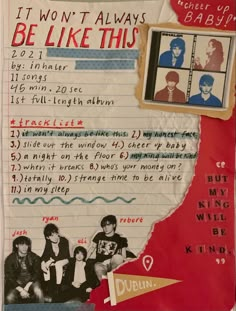 IT WON'T ALWAYS
BE LIKE THIS
"cheer up
BABY!"
2021
by: inhaler
11 songs
45 min. 20 sec
1st full-length album
*tracklist*
1.) it won't always be like this 2.) my honest face
3.) slide out the window 4.) cheer up baby
5.) a night on the floor 6.) my king will be kind
7.) when it breaks 8.) who's your money on?
9.) totally 10.) strange time to be alive
11.) in my sleep
"
BUT
MY
KING
WILL
BE
KIND.
"
ryan
robert
josh
eli
DUBLIN.